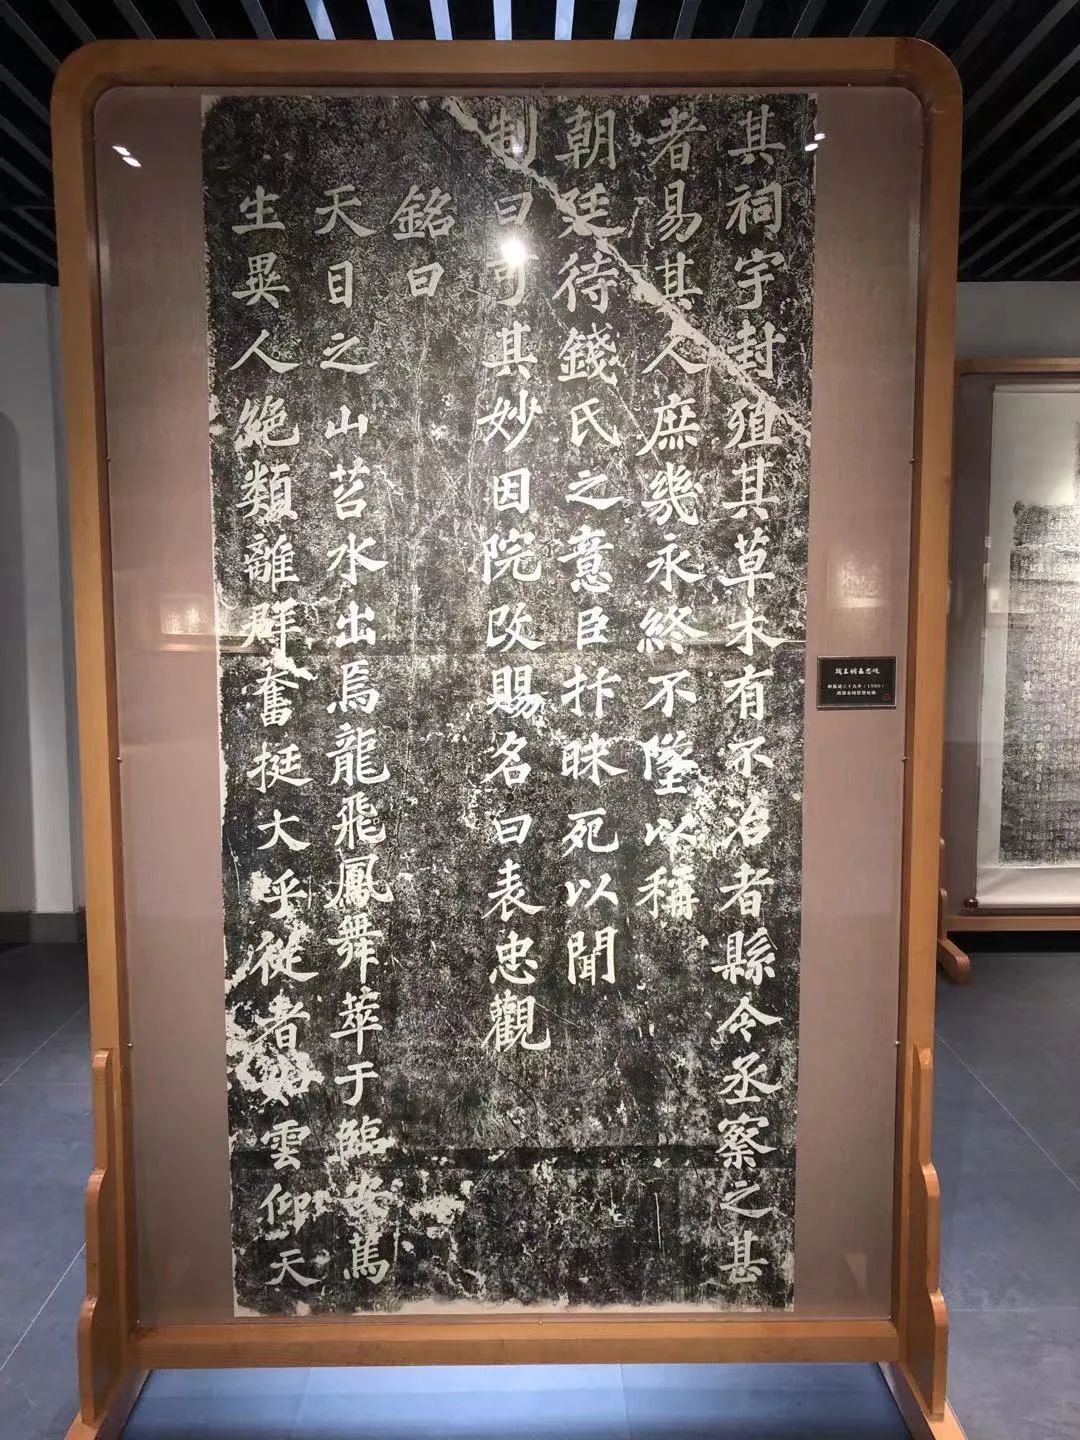 其祠宇封殖其草木有不治者縣令丞察之甚
者易其人庶幾永終不墜以稱
朝廷待錢氏之意臣抃昧死以聞
制曰可其妙因院改賜名曰表忠觀
銘曰
天目之山苕水出焉龍飛鳳舞萃于臨安篤
生異人絶類離群奮挺大呼從者如雲仰天
明嘉靖三十九年（1560）